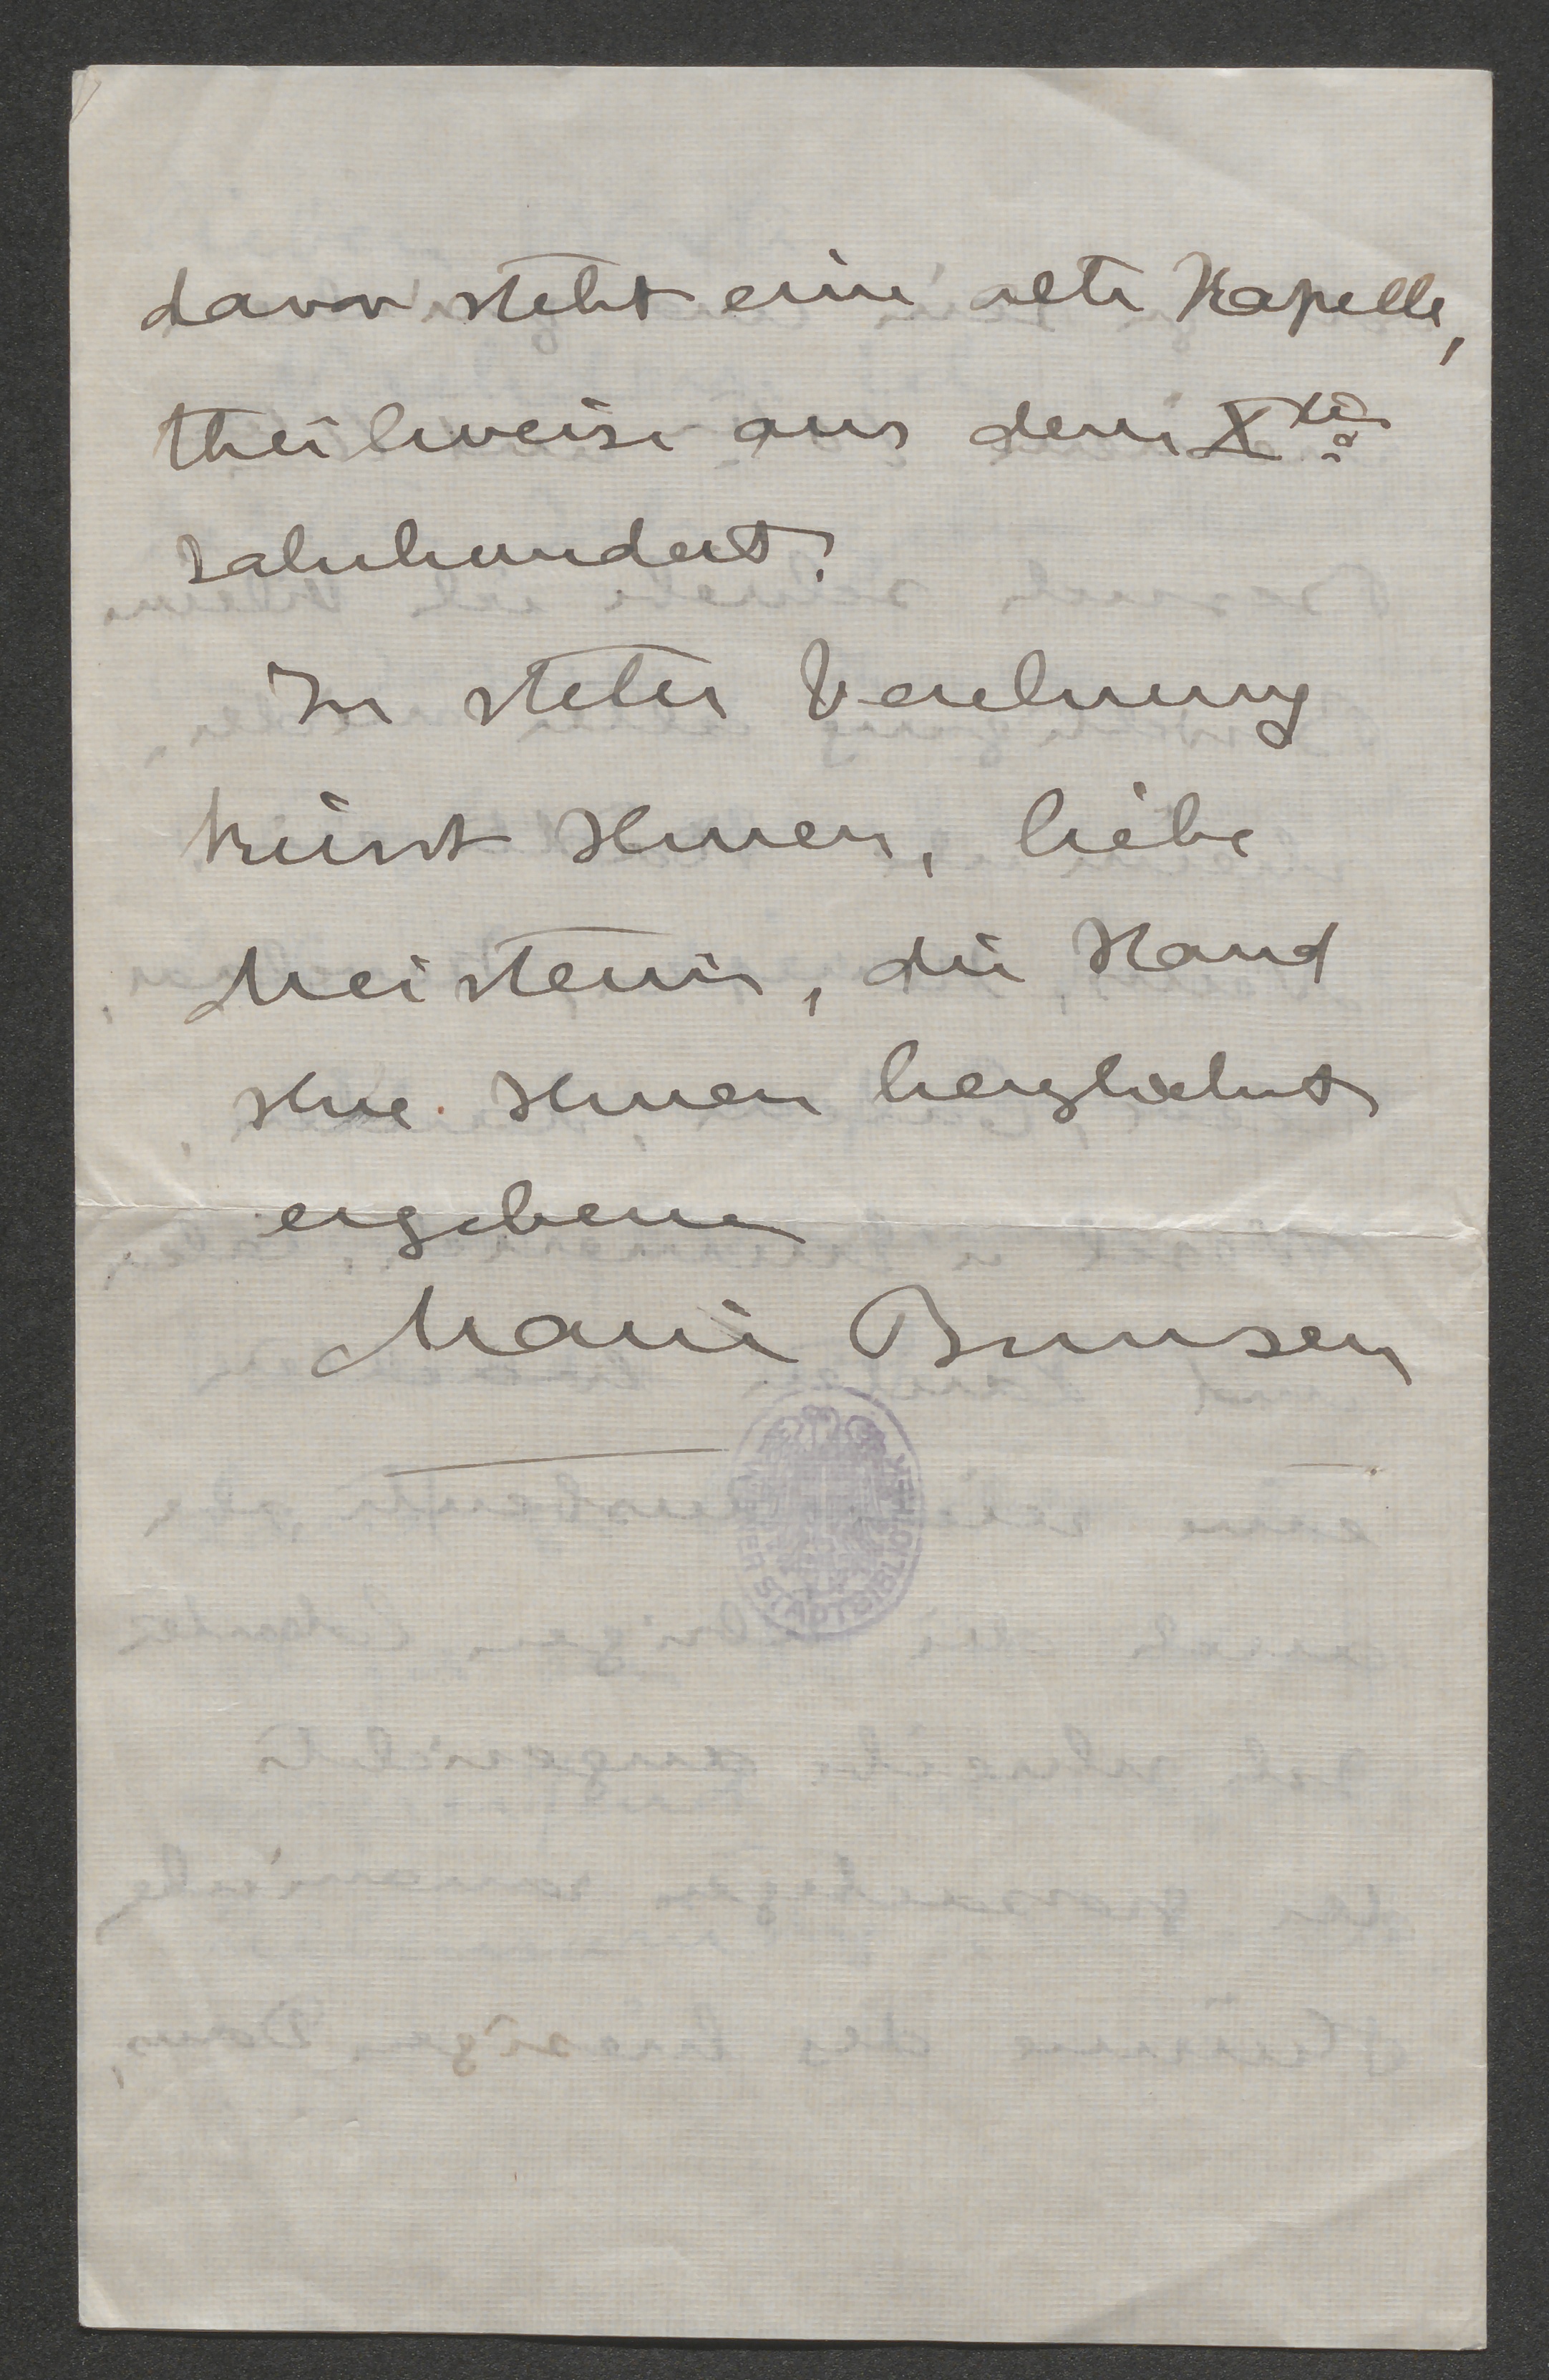 davor steht eine alte Kapelle,
theilweise aus dem X<sup>ten</sup>
Jahrhundert.
In steter Verehrung
küsst Ihnen, liebe
Meisterin, die Hand
Ihre Ihnen herzlichst
ergebene
Marie Bunsen
WIENER STADTBIBLIOTHEK